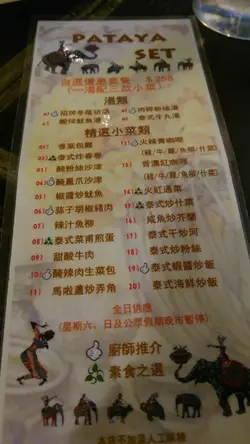 PATAYA
SET
自選優惠套餐 $258
(一湯配三款小菜)
湯類
招牌冬蔭功湯
肉碎粉絲湯
酸辣魷魚湯
泰式牛丸湯
精選小菜類
01) 香葉包雞
02) 泰式炸春卷
03) 醃粉絲沙津
04) 醃鳳爪沙津
05) 椒鹽炒魷魚
06) 蒜子胡椒豬肉
07) 辣汁魚柳
08) 泰式菜甫煎蛋
09) 甜酸牛肉
10) 醃辣肉生菜包
11) 馬啦盞炒弄角
火辣青咖喱
(牛/雞/魚柳/什菜)
香濃紅咖喱
(豬/牛/雞/魚柳/什菜)
14) 火紅通菜
15) 泰式炒什菜
16) 咸魚炒芥蘭
17) 泰式干炒河
18) 泰式炒粉絲
19) 泰式蝦醬炒飯
20) 泰式海鮮炒飯
全日供應
(星期六、日及公眾假期晚市暫停)
廚師推介
素食之選